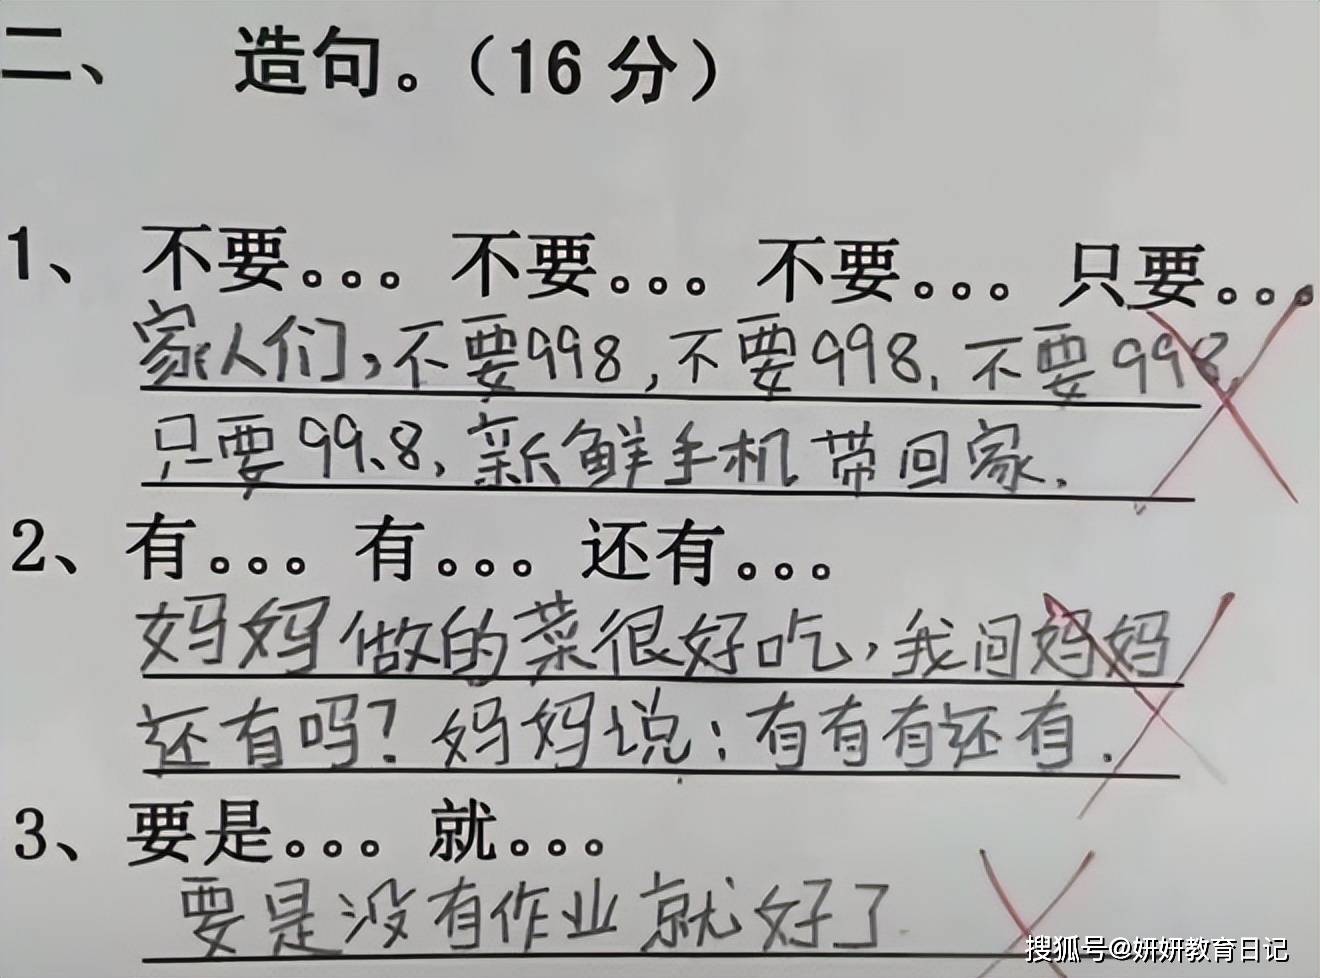 二、 造句。（16 分）
1、 不要。。。不要。。。不要。。。只要。。。
家人们，不要998，不要998，不要998，
只要99.8，新鲜手机带回家.
2、有。。。有。。。还有。。。
妈妈做的菜很好吃，我问妈妈
还有吗？妈妈说：有有有还有.
3、要是。。。就。。。
要是没有作业就好了
搜狐号@妍妍教育日记